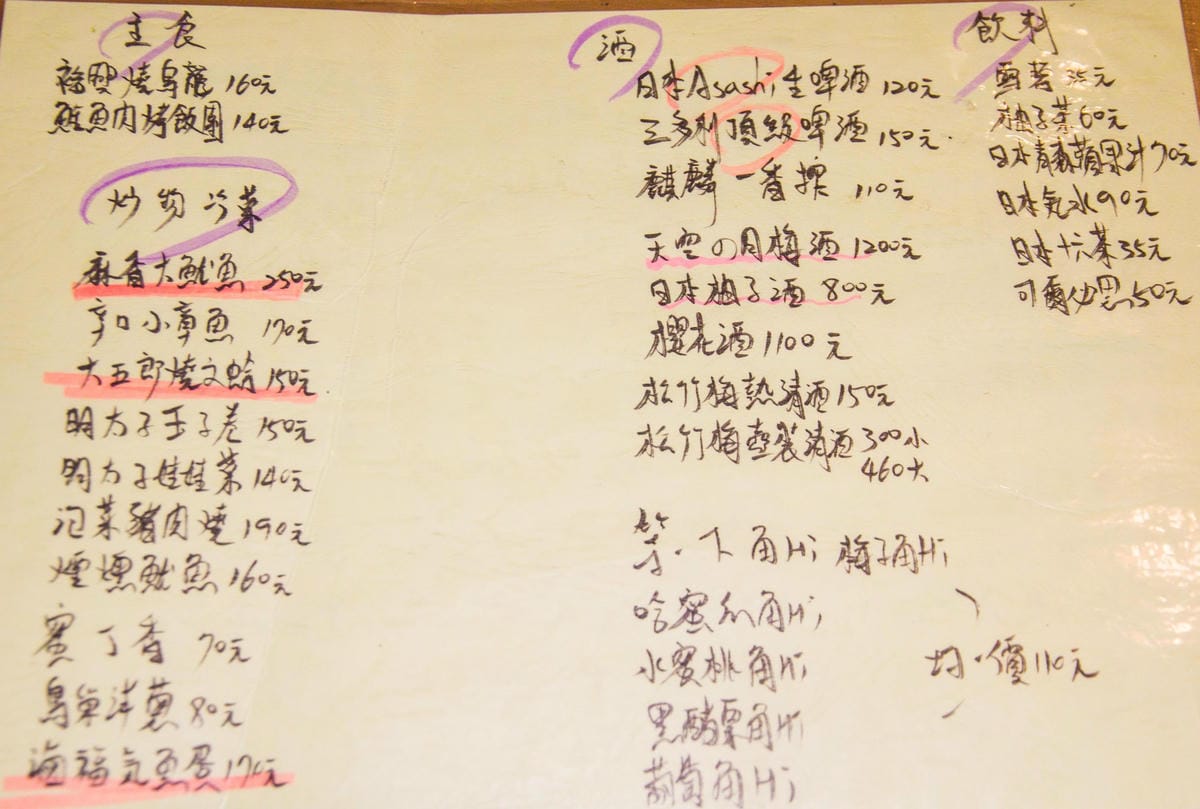 主食
福興燒烏龍 160元
鮭魚肉烤飯團 140元
炒物 冷菜
麻香大魷魚 250元
辛口小章魚 170元
大五郎燒文蛤 150元
明太子玉子卷 150元
明太子娃娃菜 140元
泡菜豬肉燒 190元
煙燻魷魚 160元
蜜丁香 70元
鳥巢洋蔥 80元
福氣魚蛋 170元
酒
日本Asashi生啤酒 120元
三多利頂級啤酒 150元
麒麟一番搾 110元
天空の月梅酒 1200元
日本柚子酒 800元
櫻花酒 1100元
松竹梅熱清酒 150元
松竹梅壺裝清酒 300小
460大
角Hi 梅子角Hi
哈蜜瓜角Hi
水蜜桃角Hi
黑醋栗角Hi
葡萄角Hi
均一價 110元
飲料
35元
柚子茶 60元
日本青森蘋果汁 70元
日本氣水 90元
日本十六茶 35元
可爾必思 50元